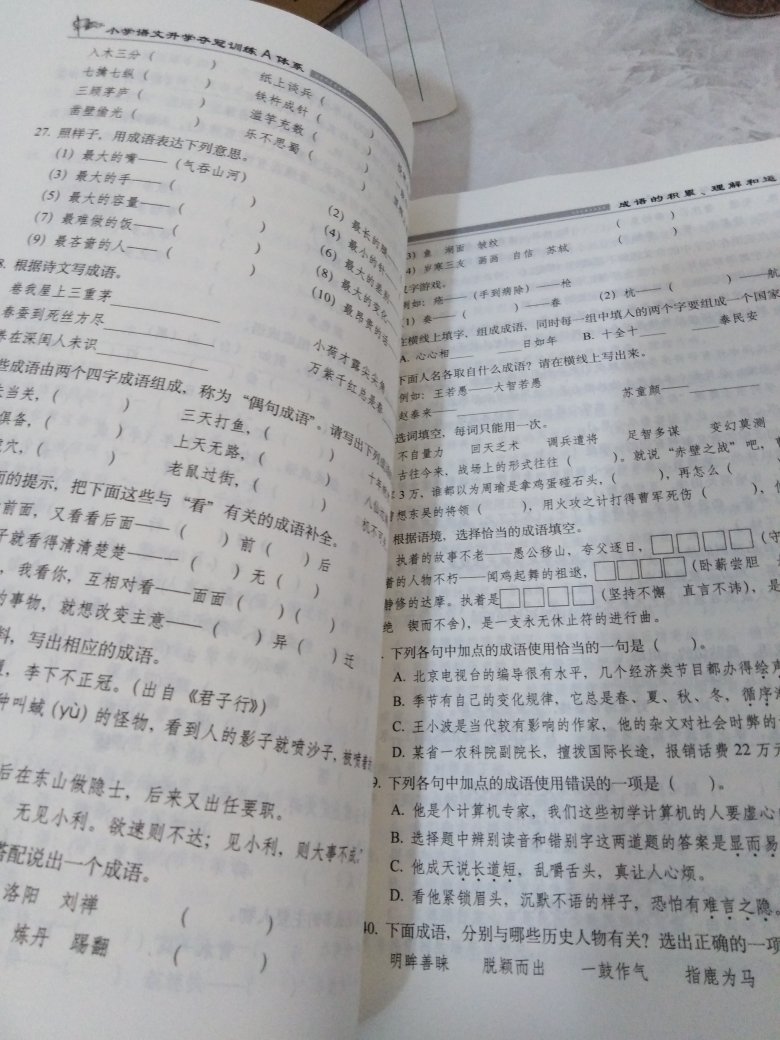 小学语文升学夺冠训练A体系
入木三分( ) 纸上谈兵( )
七擒七纵( ) 铁杵成针( )
三顾茅庐( ) 滥竽充数( )
凿壁偷光( ) 乐不思蜀( )
27. 照样子，用成语表达下列意思。
(1) 最大的嘴——(气吞山河) (2) 最长的腿——
(3) 最大的手——( ) (4) 最小的针——
(5) 最大的容量——( ) (6) 最大的差别
(7) 最难做的饭——( ) (8) 最大的变化
(9) 最吝啬的人——( ) (10) 最昂贵的话
8. 根据诗文写成语。
卷我屋上三重茅 小荷才露尖尖角
春蚕到死丝方尽 万紫千红总是春
养在深闺人未识
些成语由两个四字成语组成，称为“偶句成语”。请写出下列
当关，( ) 三天打鱼，( )
俱备，( ) 上天无路，( )
穴，( ) 老鼠过街，( ) 机不可
面的提示，把下面这些与“看”有关的成语补全。
前面，又看看后面——( )前( )后
子就看得清清楚楚——( )无( )
，我看你，互相对看——面面( )( )
的事物，就想改变主意——( )异( )迁
料，写出相应的成语。
，李下不正冠。(出自《君子行》)
种叫蜮(yù)的怪物，看到人的影子就喷沙子，被喷着
后在东山做隐士，后来又出任要职。
无见小利。欲速则不达；见小利，则大事不成。”
搭配说出一个成语。
洛阳 刘禅 ( )
炼丹 踢翻 ( )
成语的积累、理解和运
3) 鱼 湖面 皱纹 ( )
4) 岁寒三友 画画 自信 苏轼 ( )
字游戏。
例如：疮——(手到病除)——枪
1) 奏——( )——春 (2) 杭——( )——航
在横线上填字，组成成语，同时每一组中填入的两个字要组成一个国家
A. 心心相____ ____日如年 B. 十全十____ ____泰民安
下面人名各取自什么成语？请在横线上写出来。
例如：王若愚——大智若愚 苏童颜——
赵泰来——
选词填空，每词只能用一次。
不自量力 回天乏术 调兵遣将 足智多谋 变幻莫测
古往今来，战场上的形式往往( )。就说“赤壁之战”吧，
3万，谁都以为周瑜是拿鸡蛋碰石头，( )，再怎么(
想东吴的将领( )，用火攻之计打得曹军死伤( )，
根据语境，选择恰当的成语填空。
执着的故事不老——愚公移山，夸父逐日，□□□□(守
着的人物不朽——闻鸡起舞的祖逖，□□□□(卧薪尝胆
静修的达摩。执着是□□□□(坚持不懈 直言不讳)，是
绝 锲而不舍)，是一支永无休止符的进行曲。
. 下列各句中加点的成语使用恰当的一句是( )。
A. 北京电视台的编导很有水平，几个经济类节目都办得绘声
B. 季节有自己的变化规律，它总是春、夏、秋、冬，循序
C. 王小波是当代较有影响的作家，他的杂文对社会时弊的
D. 某省一农科院副院长，擅拨国际长途，报销话费22万
9. 下列各句中加点的成语使用错误的一项是( )。
A. 他是个计算机专家，我们这些初学计算机的人要虚心
B. 选择题中辨别读音和错别字这两道题的答案是显而易
C. 他成天说长道短，乱嚼舌头，真让人心烦。
D. 看他紧锁眉头，沉默不语的样子，恐怕有难言之隐。
40. 下面成语，分别与哪些历史人物有关？选出正确的一项
明眸善睐 脱颖而出 一鼓作气 指鹿为马